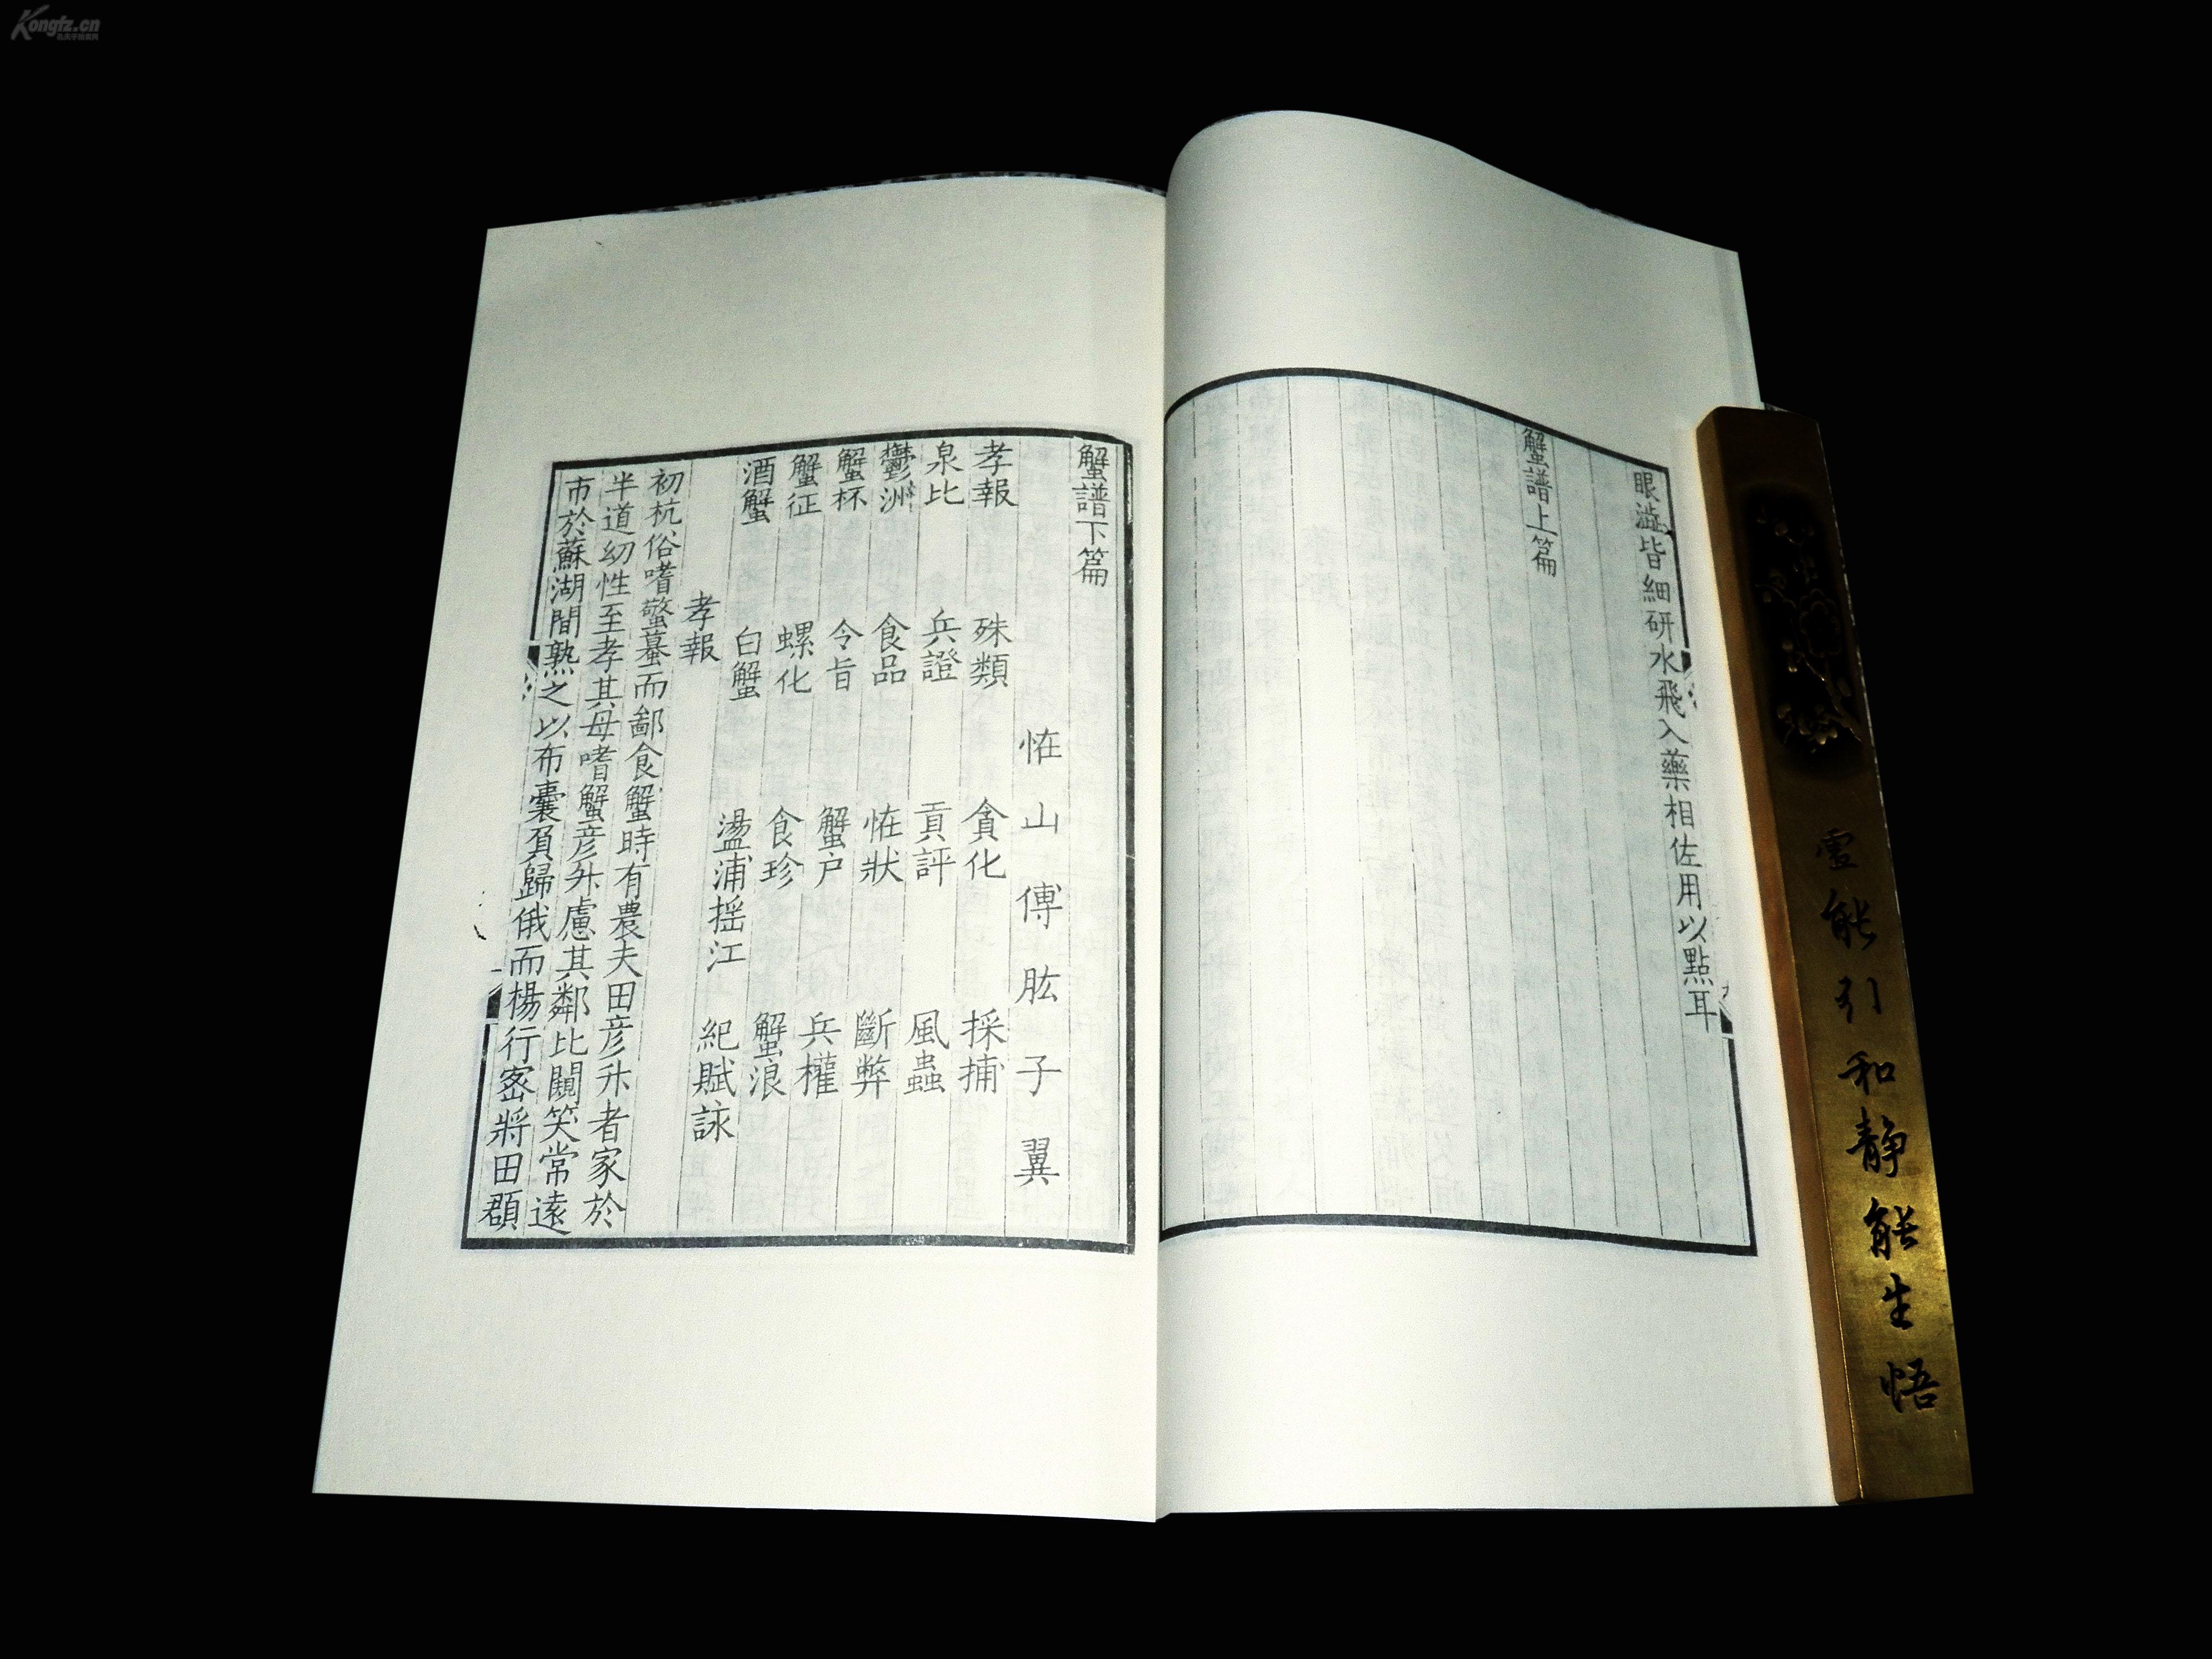 眼澁皆細研水飛入藥相佐用以點耳
蟹譜上篇
蟹譜下篇
恠山傅肱子翼
孝報 殊類 貪化 採捕
泉比 兵證 貢評 風蟲
鬱洲 食品 恠狀 斷弊
蟹杯 令旨 蟹户 兵權
蟹征 螺化 食珍 蟹浪
酒蟹 白蟹 盪浦揺江 紀賦詠
孝報
初杭俗嗜蟼蟇而鄙食蟹時有農夫田彦升者家於
半道幼性至孝其母嗜蟹彦升慮其鄰比闚笑常逺
市於蘇湖間熟之以布囊負歸俄而楊行宻將田頵
靈能引和静能生悟
Kongfz.cn
孔夫子旧书网